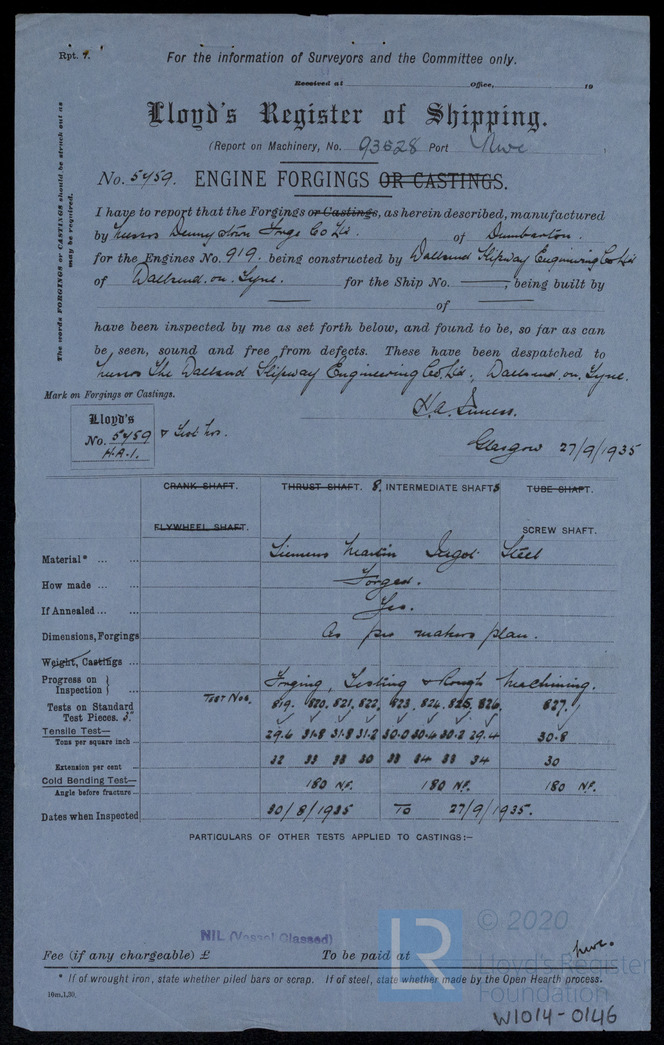 Rpt. 7.
For the information of Surveyors and the Committee only.
Received at Office, 19
Lloyd's Register of Shipping.
(Report on Machinery, No. 93628 Port Nwc )
No. 5459. ENGINE FORGINGS OR CASTINGS.
The words FORGINGS or CASTINGS should be struck out as may be required.
I have to report that the Forgings or Castings, as herein described, manufactured
by Messrs Dennystown Forge Co Ld. of Dumbarton.
for the Engines No. 919. being constructed by Wallsend Slipway Engineering Co Ld
of Wallsend. on. Tyne. for the Ship No. ——, being built by
—— of ——
have been inspected by me as set forth below, and found to be, so far as can
be seen, sound and free from defects. These have been despatched to
Messrs The Wallsend Slipway Engineering Co. Ld., Wallsend. on. Tyne.
Mark on Forgings or Castings.
H.A. Inness.
Lloyd's
No. 5459 & Test Nos.
H.A.I.
Glasgow 27/9/1935
CRANK SHAFT. THRUST SHAFT. 8, INTERMEDIATE SHAFTS TUBE SHAFT.
FLYWHEEL SHAFT. SCREW SHAFT.
Material* ... ... Siemens Martin Ingot Steel
How made ... ... Forged.
If Annealed ... ... Yes.
Dimensions, Forgings As per makers plan.
Weight, Castings ...
Progress on Inspection } Forging, Testing & Rough Machining.
Tests on Standard Test Pieces. 3" Test Nos. 819. 820. 821. 822. 823. 824. 825. 826. 827.
Tensile Test—
Tons per square inch — 29.6 31.8 31.8 31.2 30.0 30.6 30.2 29.4 30.8
Extension per cent — 32 33 33 30 33 34 33 34 30
Cold Bending Test—
Angle before fracture — 180 N.F. 180 N.F. 180 N.F.
Dates when Inspected 30/8/1935 To 27/9/1935.
PARTICULARS OF OTHER TESTS APPLIED TO CASTINGS:—
NIL (Vessel Classed)
Fee (if any chargeable) £ To be paid at Nwc.
* If of wrought iron, state whether piled bars or scrap. If of steel, state whether made by the Open Hearth process.
10m,1,30.
LR
© 2020
Lloyd's Register
Foundation
W1014-0146